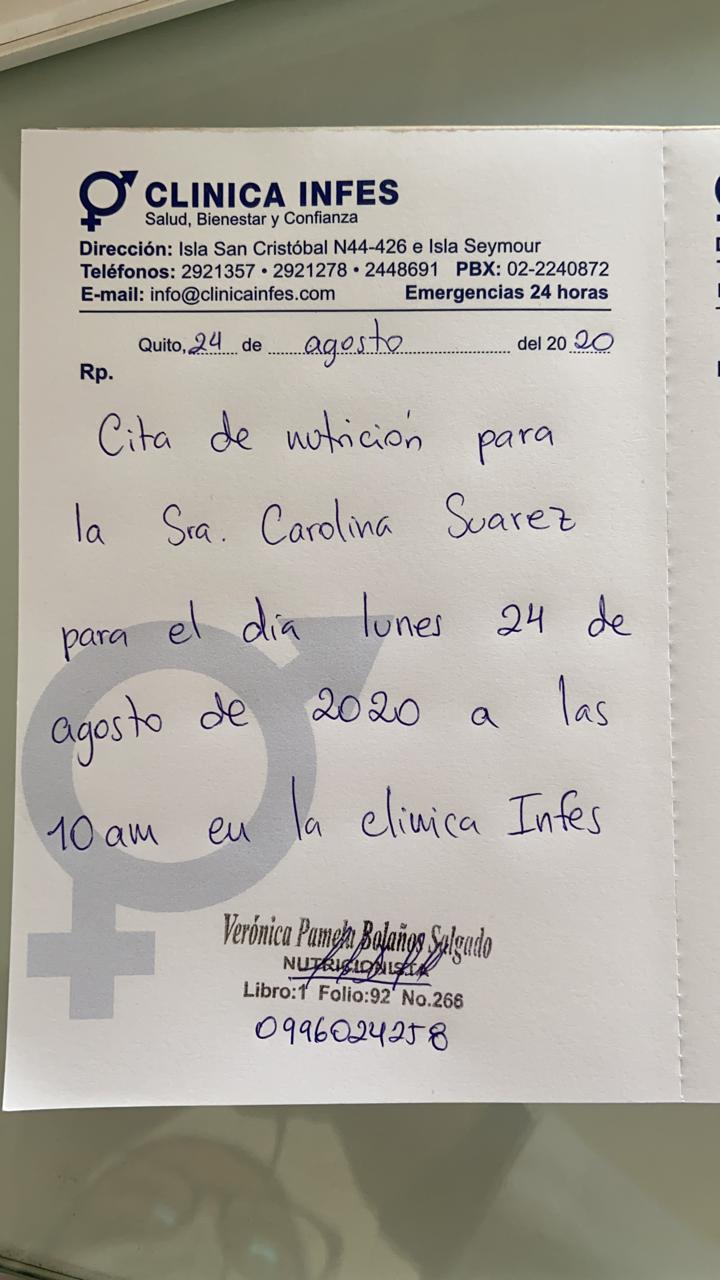 CLINICA INFES
Salud, Bienestar y Confianza
Dirección: Isla San Cristóbal N44-426 e Isla Seymour
Teléfonos: 2921357 • 2921278 • 2448691 PBX: 02-2240872
E-mail: info@clinicainfes.com Emergencias 24 horas
Quito, 24 de agosto del 20 20
Rp.
Cita de nutrición para
la Sra. Carolina Suarez
para el día lunes 24 de
agosto de 2020 a las
10 am en la clinica Infes
Verónica Pamela Bolaños Salgado
NUTRICIONISTA
Libro:1 Folio:92 No.266
0996024258